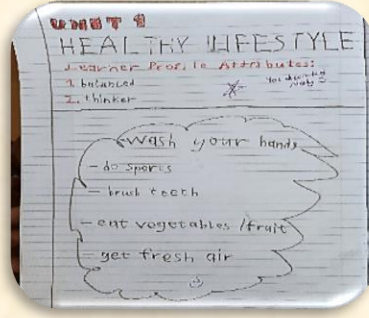 UNIT 1
HEALTHY LIFESTYLE
Learner Profile Attributes:
1. balanced
2. thinker
wash your hands
- do sports
- brush teeth
- eat vegetables /fruit
- get fresh air